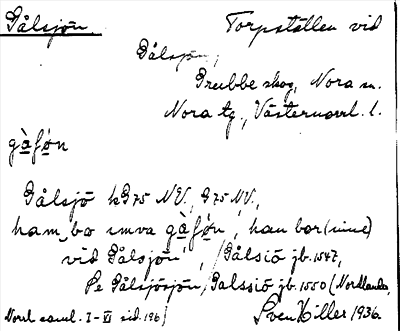 Gålsjön.
Torpställen vid
Gålsjön,
Grubbe skog, Nora sn.
Nora tg., Västernorrl. l.
gå̀ʃø̀n
Gålsjö hG75 NV., G75 NV.,
ham bor imva gå̀ʃø̀n, han bor (inne)
vid Gålsjön, /Gålsiö jb. 1547,
Gålsjösjön, Galssiö jb. 1550 (Nordlander,
Norrl. saml. I-VI sid. 196)
Sven Hiller 1936.